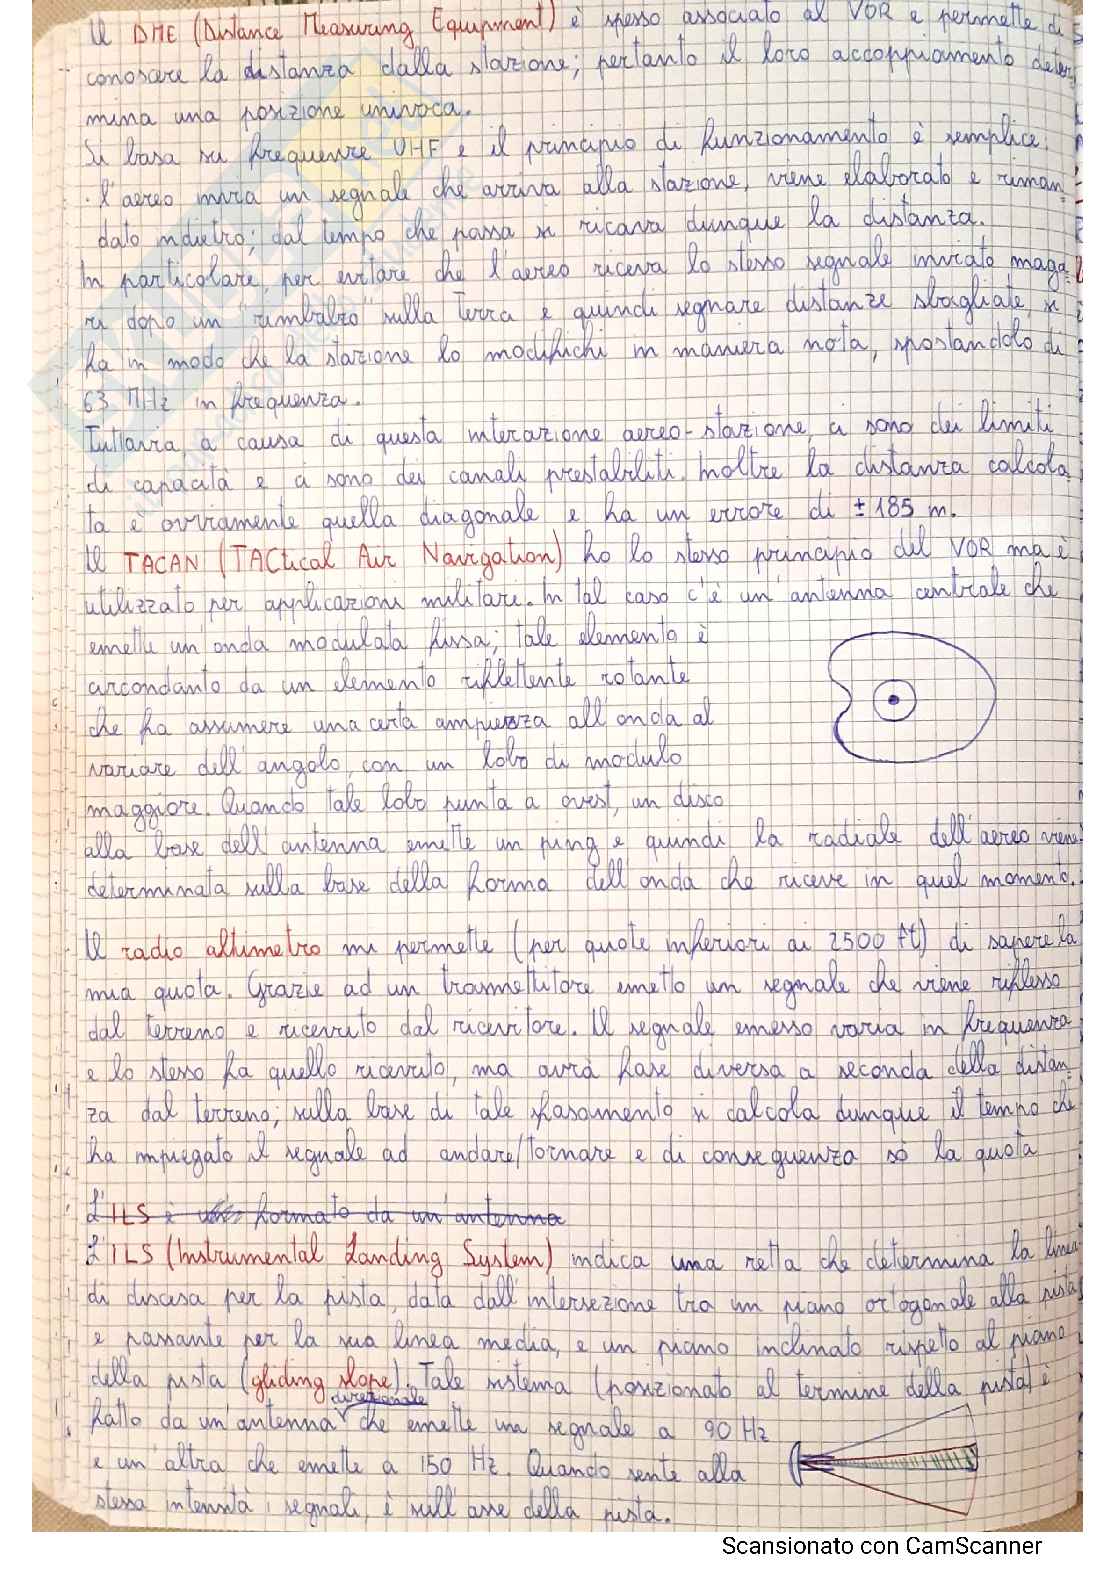 Il DME (Distance Measuring Equipment) è spesso associato al VOR e permette di
conoscere la distanza dalla stazione; pertanto il loro accoppiamento deter
mina una posizione univoca.
Si basa su frequenze UHF e il principio di funzionamento è semplice:
l'aereo invia un segnale che arriva alla stazione, viene elaborato e riman
dato indietro; dal tempo che passa si ricava dunque la distanza.
In particolare, per evitare che l'aereo riceva lo stesso segnale inviato maga
ri dopo un "rimbalzo" sulla Terra e quindi segnare distanze sbagliate, si
fa in modo che la stazione lo modifichi in maniera nota, spostandolo di
63 MHz in frequenza.
Tuttavia, a causa di questa interazione aereo-stazione, ci sono dei limiti
di capacità e ci sono dei canali prestabiliti. Inoltre la distanza calcola
ta è ovviamente quella diagonale e ha un errore di ± 185 m.
Il TACAN (TACtical Air Navigation) ha lo stesso principio del VOR ma è
utilizzato per applicazioni militari. In tal caso c'è un'antenna centrale che
emette un'onda modulata fissa; tale elemento è
circondanto da un elemento riflettente rotante
che fa assumere una certa ampiezza all'onda al
variare dell'angolo, con un lobo di modulo
maggiore. Quando tale lobo punta a ovest, un disco
alla base dell'antenna emette un ping e quindi la radiale dell'aereo viene
determinata sulla base della forma dell'onda che riceve in quel momento.
Il radio altimetro mi permette (per quote inferiori ai 2500 ft) di sapere la
mia quota. Grazie ad un trasmettitore emetto un segnale che viene riflesso
dal terreno e ricevuto dal ricevitore. Il segnale emesso varia in frequenza
e lo stesso fa quello ricevuto, ma avrà fase diversa a seconda della distan
za dal terreno; sulla base di tale sfasamento si calcola dunque il tempo che
ha impiegato il segnale ad andare/tornare e di conseguenza so la quota
L'ILS è formato da un'antenna
L'ILS (Instrumental Landing System) indica una retta che determina la linea
di discesa per la pista, data dall'intersezione tra un piano ortogonale alla pista
e passante per la sua linea media, e un piano inclinato rispetto al piano
della pista (gliding slope). Tale sistema (posizionato al termine della pista) è
direzionale
fatto da un'antenna che emette un segnale a 90 Hz
e un'altra che emette a 150 Hz. Quando sente alla
stessa intensità i segnali, è sull'asse della pista.
Scansionato con CamScanner